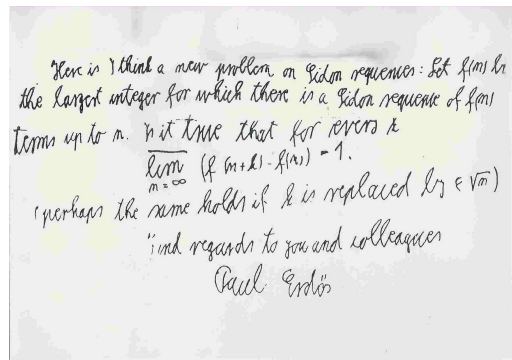 Here is I think a new problem on Sidon sequences: Let f(n) be
the largest integer for which there is a Sidon sequence of f(n)
terms up to n. Is it true that for every k
lim (f(n+k) - f(n)) = 1.
n = ∞
(perhaps the same holds if k is replaced by ε √n)
kind regards to you and colleagues
Paul Erdős